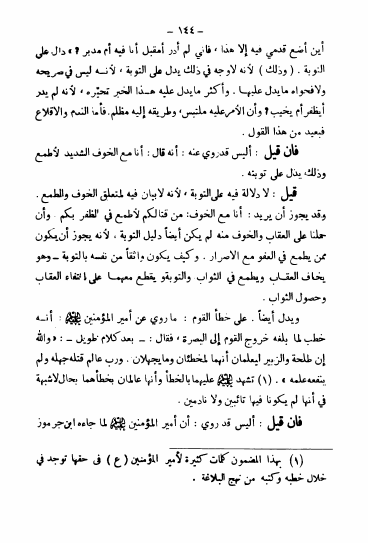 - ١٤٤ -
أين أضع قدمي فيه إلا هذا، فاني لم أدر أمقبل أنا فيه أم مدبر ؟ » دال على
التوبة . ( وذلك ) لأنه لاوجه في ذلك يدل على التوبة ، لأنــه ليس في صريحه
ولافحواه مايدل عليهـا . وأكثر مايدل عليه هــذا الخبر تحيّره، لأنه لم يدر
أيظفر أم يخيب ؟ وأن الأمر عليه ملتبس، وطريقه إليه مظلم. فأما الندم والاقلاع
فبعيد من هذا القول .
فان قيل : أليس قد روي عنه : أنه قال : أنا مع الخوف الشديد لأطمع
وذلك يدل على توبته .
قيل : لا دلالة فيه على التوبة ، لأنه لابيان فيه لمتعلق الخوف والطمع .
وقد يجوز أن يريد : أنا مع الخوف: من قتالكم لأطمع في الظفر بكم . وأن
حملنا على العقاب والخوف منه لم يكن أيضاً دليل التوبة ، لأنه يجوز أن يكون
ممن يطمع في العفو مع الاصرار . وكيف يكون واثقاً من نفسه بالتوبة ــ وهو
يخاف العقـاب ويطمع في الثواب والتوبة ويقطع معهمـا على انتفاء العقاب
وحصول الثواب .
ويدل أيضاً . على خطأ القوم : ما روي عن أمير المؤمنين عليه السلام : أنــه
خطب لما بلغه خروج القوم إلى البصرة ، فقال : ـ بعد كلام طويل ـ : « والله
إن طلحة والزبير ليعلمان أنهما لمخطئان ومايجهلان . ورب عالم قتله جهله ولم
ينفعه علمه » . (١) تشهد عليه السلام عليهما بالخطأ وأنها عالمان بخطأهما بحال لاشبهة
في أنها لم يكونا فيها تائبين ولا نادمين .
فان قيل : أليس قد روي : أن أمير المؤمنين عليه السلام لما جاءه ابن جرموز
(١) بهذا المضمون كلمات كثيرة لأمير المؤمنين ( ع ) في حقها توجد في
خلال خطبه وكتبه من نهج البلاغة .